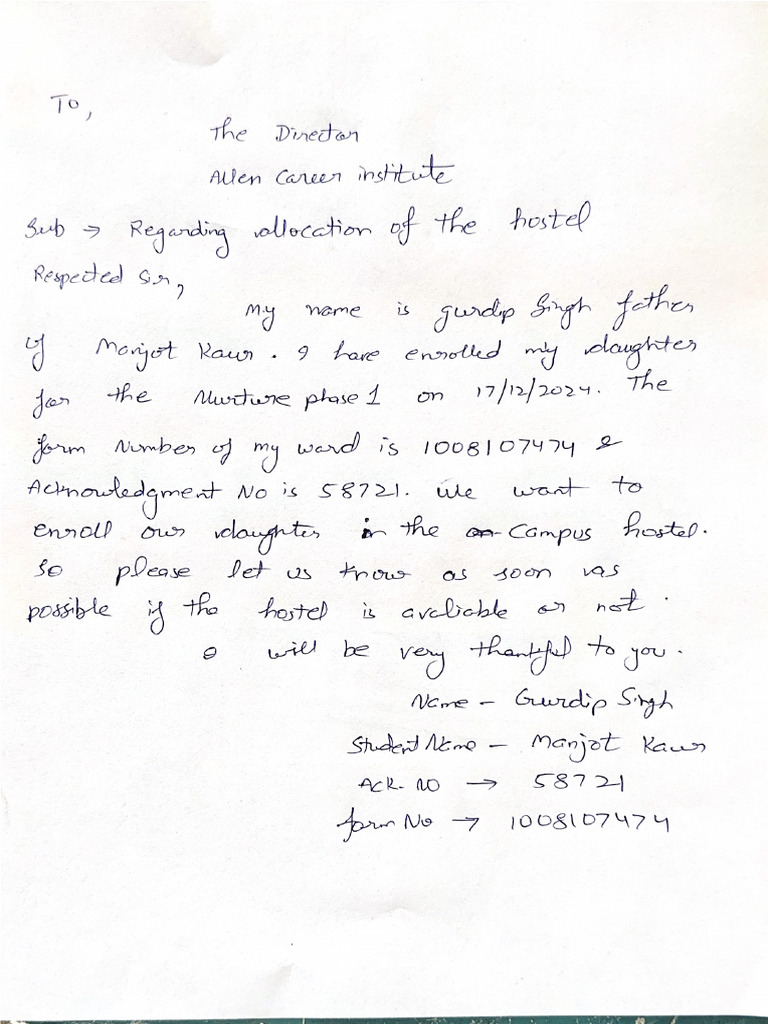 To,
The Director
Allen Career institute
Sub → Regarding allocation of the hostel
Respected Sir,
My name is gurdip Singh father
of Manjot Kaur. I have enrolled my daughter
for the Nurture phase 1 on 17/12/2024. The
form Number of my ward is 1008107474 &
Acknowledgment No is 58721. We want to
enroll our daughter in the Campus hostel.
So please let us know as soon as
possible if the hostel is avaliable or not.
I will be very thankful to you.
Name - Gurdip Singh
Student Name - Manjot Kaur
Ack. NO → 58721
form No → 1008107474